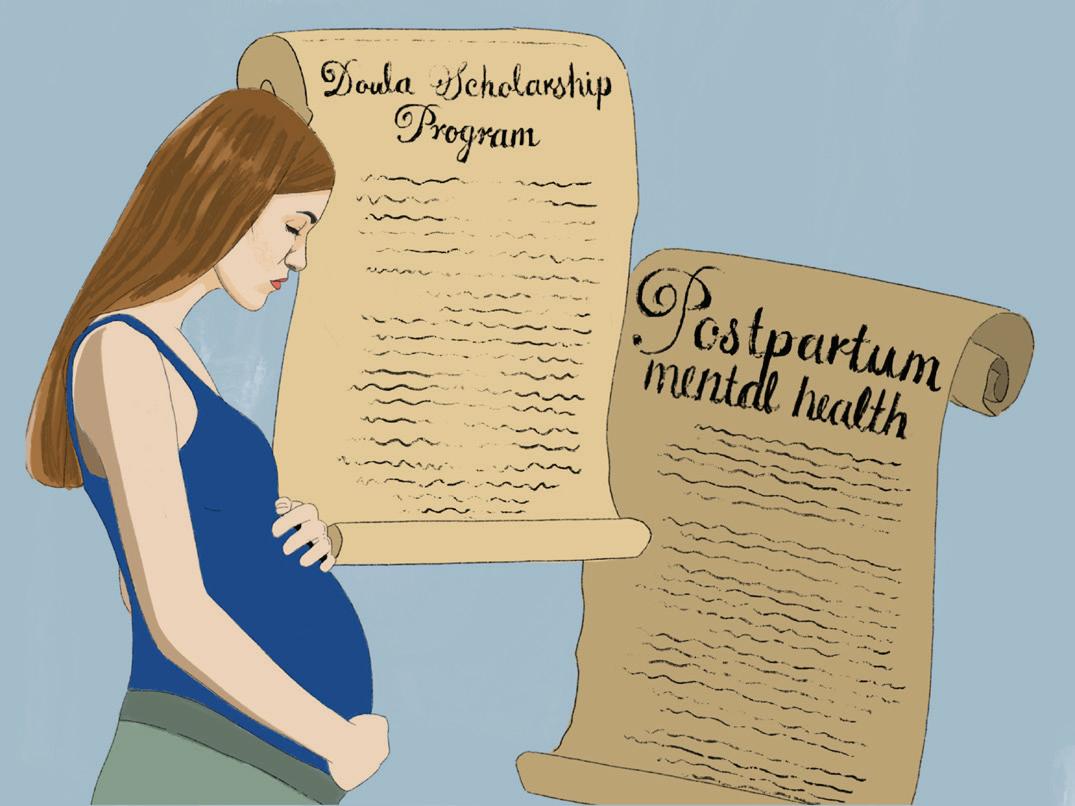 Doula Scholarship
Program
Postpartum
mental health